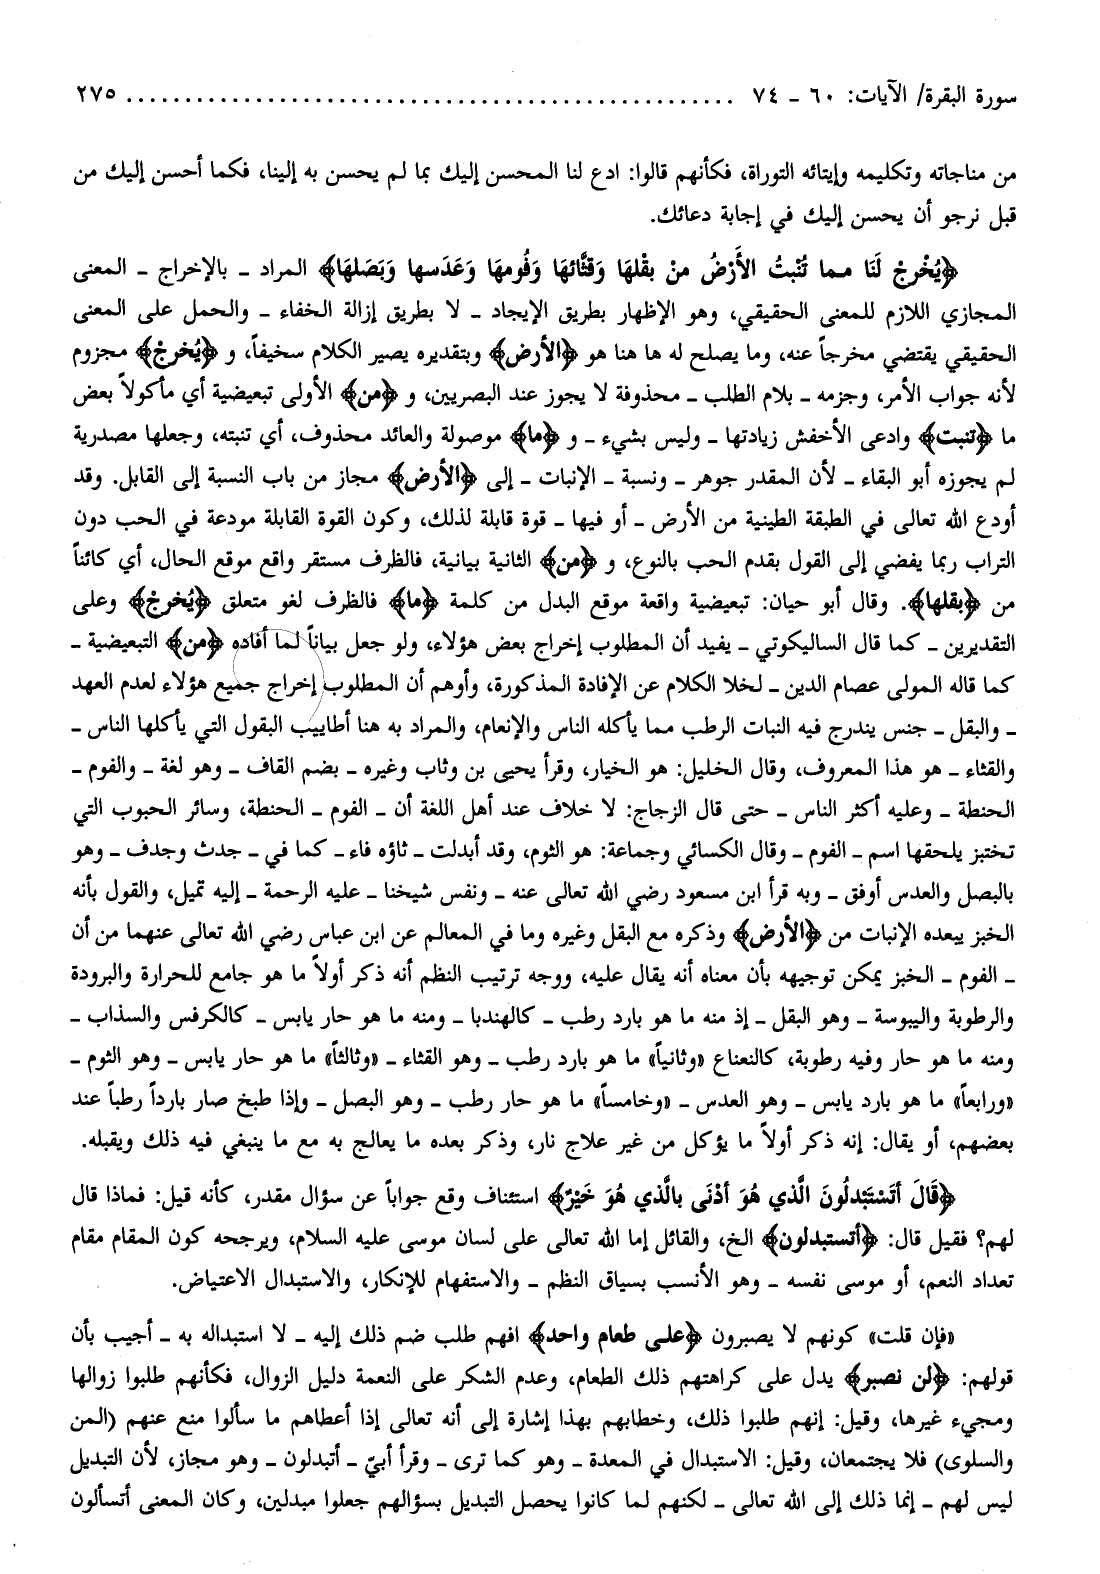 سورة البقرة/ الآيات: ٦٠ ـ ٧٤ ................................................... ٢٧٥
من مناجاته وتكليمه وإيتائه التوراة، فكأنهم قالوا: ادع لنا المحسن إليك بما لم يحسن به إلينا، فكما أحسن إليك من
قبل نرجو أن يحسن إليك في إجابة دعائك.
﴿يُخْرِجْ لَنَا مما تُنْبتُ الأَرْضُ منْ بقْلهَا وَقثَّائهَا وَفُومهَا وَعَدَسها وَبَصَلهَا﴾ المراد ـ بالإخراج ـ المعنى
المجازي اللازم للمعنى الحقيقي، وهو الإظهار بطريق الإيجاد ـ لا بطريق إزالة الخفاء ـ والحمل على المعنى
الحقيقي يقتضي مخرجاً عنه، وما يصلح له ها هنا هو ﴿الأرض﴾ وبتقديره يصير الكلام سخيفاً، و ﴿يُخرجْ﴾ مجزوم
لأنه جواب الأمر، وجزمه ـ بلام الطلب ـ محذوفة لا يجوز عند البصريين، و ﴿من﴾ الأولى تبعيضية أي مأكولاً بعض
ما ﴿تنبت﴾ وادعى الأخفش زيادتها ـ وليس بشيء ـ و ﴿ما﴾ موصولة والعائد محذوف، أي تنبته، وجعلها مصدرية
لم يجوزه أبو البقاء ـ لأن المقدر جوهر ـ ونسبة ـ الإنبات ـ إلى ﴿الأرض﴾ مجاز من باب النسبة إلى القابل. وقد
أودع الله تعالى في الطبقة الطينية من الأرض ـ أو فيها ـ قوة قابلة لذلك، وكون القوة القابلة مودعة في الحب دون
التراب ربما يفضي إلى القول بقدم الحب بالنوع، و ﴿من﴾ الثانية بيانية، فالظرف مستقر واقع موقع الحال، أي كائناً
من ﴿بقلها﴾. وقال أبو حيان: تبعيضية واقعة موقع البدل من كلمة ﴿ما﴾ فالظرف لغو متعلق ﴿يُخرجْ﴾ وعلى
التقديرين ـ كما قال الساليكوتي ـ يفيد أن المطلوب إخراج بعض هؤلاء، ولو جعل بياناً لما أفاده ﴿من﴾ التبعيضية ـ
كما قاله المولى عصام الدين ـ لخلا الكلام عن الإفادة المذكورة، وأوهم أن المطلوب إخراج جميع هؤلاء لعدم العهد
ـ والبقل ـ جنس يندرج فيه النبات الرطب مما يأكله الناس والإنعام، والمراد به هنا أطاييب البقول التي يأكلها الناس ـ
والقثاء ـ هو هذا المعروف، وقال الخليل: هو الخيار، وقرأ يحيى بن وثاب وغيره ـ بضم القاف ـ وهو لغة ـ والفوم ـ
الحنطة ـ وعليه أكثر الناس ـ حتى قال الزجاج: لا خلاف عند أهل اللغة أن ـ الفوم ـ الحنطة، وسائر الحبوب التي
تختبز يلحقها اسم ـ الفوم ـ وقال الكسائي وجماعة: هو الثوم، وقد أبدلت ـ ثاؤه فاء ـ كما في ـ جدث وجدف ـ وهو
بالبصل والعدس أوفق ـ وبه قرأ ابن مسعود رضي الله تعالى عنه ـ ونفس شيخنا ـ عليه الرحمة ـ إليه تميل، والقول بأنه
الخبز يبعده الإنبات من ﴿الأرض﴾ وذكره مع البقل وغيره وما في المعالم عن ابن عباس رضي الله تعالى عنهما من أن
ـ الفوم ـ الخبز يمكن توجيهه بأن معناه أنه يقال عليه، ووجه ترتيب النظم أنه ذكر أولاً ما هو جامع للحرارة والبرودة
والرطوبة واليبوسة ـ وهو البقل ـ إذ منه ما هو بارد رطب ـ كالهندبا ـ ومنه ما هو حار يابس ـ كالكرفس والسذاب ـ
ومنه ما هو حار وفيه رطوبة، كالنعناع «وثانياً» ما هو بارد رطب ـ وهو القثاء ـ «وثالثاً» ما هو حار يابس ـ وهو الثوم ـ
«ورابعاً» ما هو بارد يابس ـ وهو العدس ـ «وخامساً» ما هو حار رطب ـ وهو البصل ـ وإذا طبخ صار بارداً رطباً عند
بعضهم، أو يقال: إنه ذكر أولاً ما يؤكل من غير علاج نار، وذكر بعده ما يعالج به مع ما ينبغي فيه ذلك ويقبله.
﴿قَالَ أتَسْتَبْدلُونَ الَّذي هُوَ أدْنَى بالَّذي هُوَ خَيْرٌ﴾ استئناف وقع جواباً عن سؤال مقدر، كأنه قيل: فماذا قال
لهم؟ فقيل قال: ﴿أتستبدلون﴾ الخ، والقائل إما الله تعالى على لسان موسى عليه السلام، ويرجحه كون المقام مقام
تعداد النعم، أو موسى نفسه ـ وهو الأنسب بسياق النظم ـ والاستفهام للإنكار، والاستبدال الاعتياض.
«فإن قلت» كونهم لا يصبرون ﴿على طعام واحد﴾ افهم طلب ضم ذلك إليه ـ لا استبداله به ـ أجيب بأن
قولهم: ﴿لن نصبر﴾ يدل على كراهتهم ذلك الطعام، وعدم الشكر على النعمة دليل الزوال، فكأنهم طلبوا زوالها
ومجيء غيرها، وقيل: إنهم طلبوا ذلك، وخطابهم بهذا إشارة إلى أنه تعالى إذا أعطاهم ما سألوا منع عنهم (المن
والسلوى) فلا يجتمعان، وقيل: الاستبدال في المعدة ـ وهو كما ترى ـ وقرأ أبيّ ـ أتبدلون ـ وهو مجاز، لأن التبديل
ليس لهم ـ إنما ذلك إلى الله تعالى ـ لكنهم لما كانوا يحصل التبديل بسؤالهم جعلوا مبدلين، وكان المعنى أتسألون